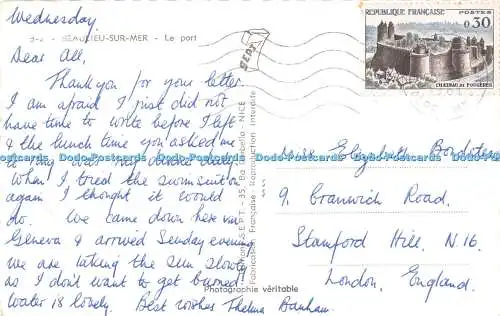 Wednesday.
BEAULIEU-SUR-MER - Le port
Dear All,
Thank you for your letter.
I am afraid I just did not
have time to write before I left
& the lunch time you asked me
to my was
When I tried the swimsuit on
again I thought it would
do. We came down here via
Geneva & arrived Sunday evening
We are taking the sun slowly
as I don't want to get burned.
Water is lovely. Best wishes Thelma Banham.
REPUBLIQUE FRANÇAISE POSTES
0,30
CHATEAU DE FOUGÈRES
S.E.P.T - 35, NICE
Fabrication Française - Reproduction Interdite
Photographie véritable
Miss Elizabeth
9, Cranwich Road,
Stamford Hill, N.16.
London, England.
Dodo-Postcards Dodo-Postcards Dodo-Postcards Dodo-Postcards Dodo-Postcards